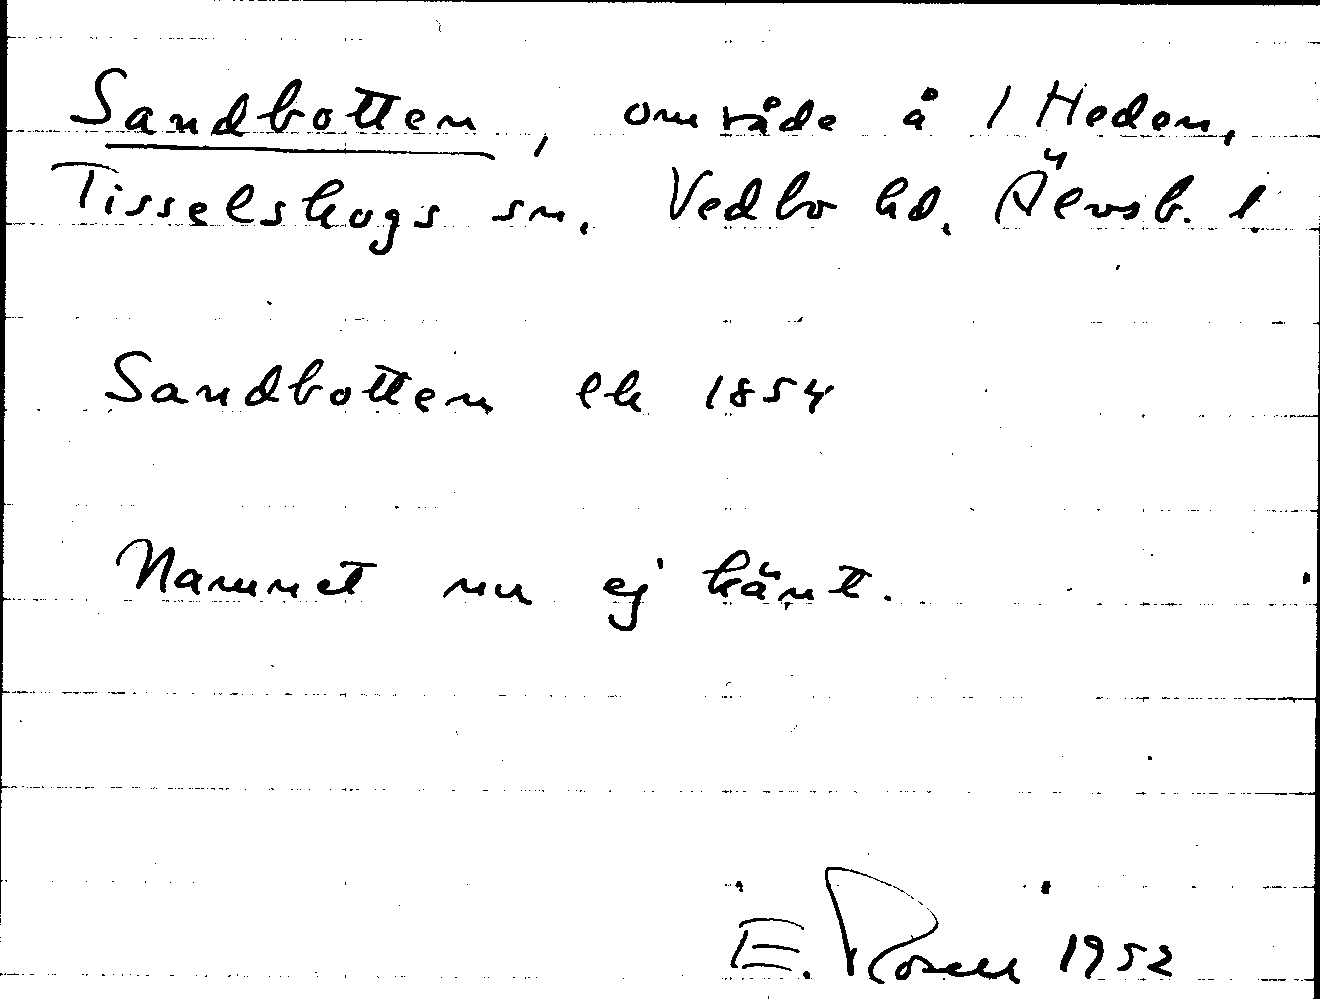 Sandbotten, område å 1 Heden,
Tisselskogs sn. Vedbo hd. Älvsb. l.
Sandbotten lk 1854
Namnet nu ej känt.
E. Rosell 1952